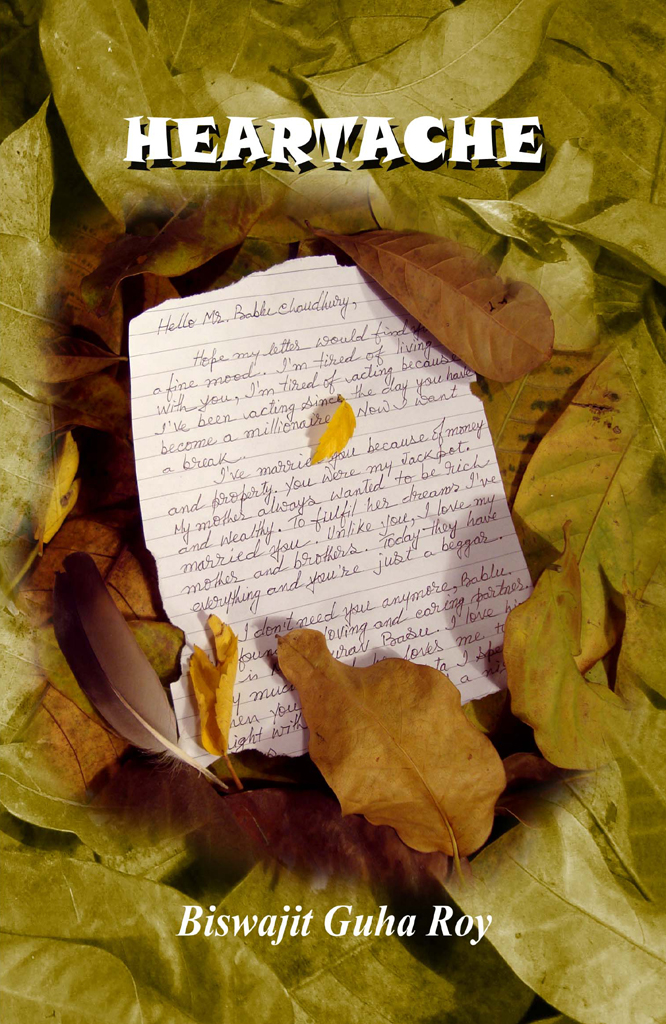 HEARTACHE
Hello Mr. Bablu Choudhury,
Hope my letter would find
a fine mood. I'm tired of living
with you, I'm tired of acting because
I've been acting since the day you have
become a millionaire. Now I want
a break.
I've married you because of money
and property. You were my Jackpot.
My mother always wanted to be rich
and wealthy. To fulfil her dreams I've
married you. Unlike you, I love my
mother and brothers. Today they have
everything and you're just a beggar.
I don't need you anymore, Bablu.
loving and caring partner
in Basu. I love
much loves me
I
you a
with
Biswajit Guha Roy